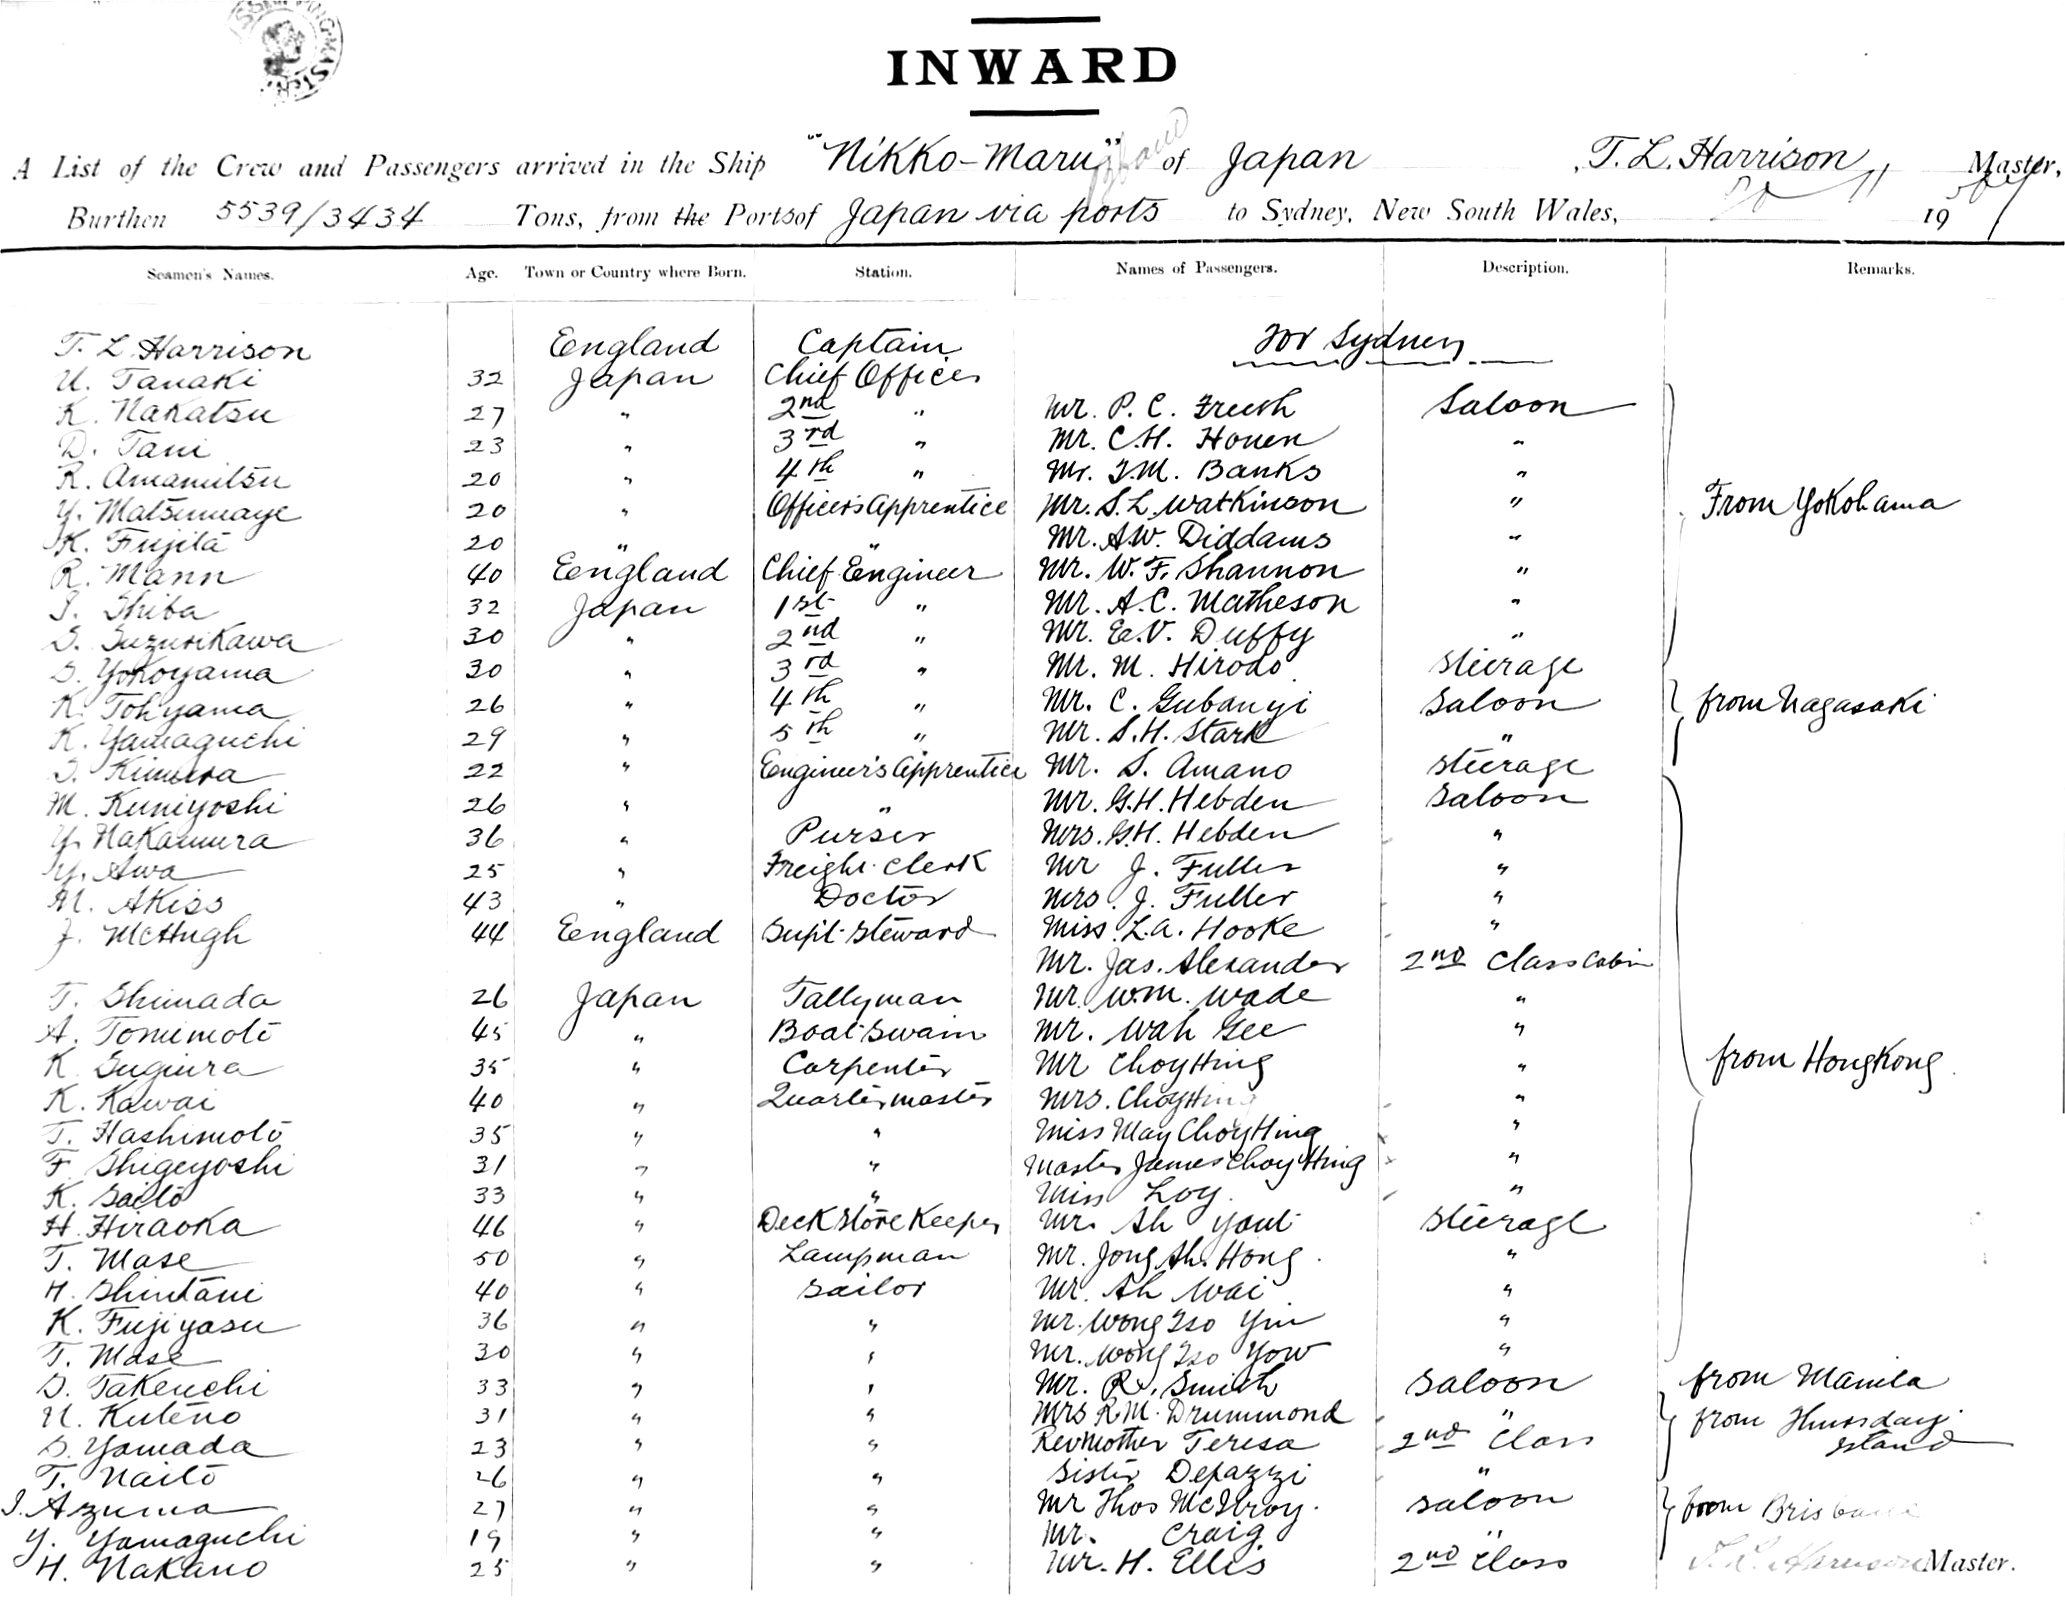 INWARD
A List of the Crew and Passengers arrived in the Ship "Nikko-Maru" of Japan , T. L. Harrison Master,
Burthen 5539/3434 Tons, from the Ports of Japan via ports to Sydney, New South Wales, 19
Seamen's Names. Age. Town or Country where Born. Station. Names of Passengers. Description. Remarks.
T. L. Harrison England Captain For Sydney
U. Tanaki 32 Japan Chief Officer
K. Nakatsu 27 " 2nd " Mr. P. C. Saloon
D. Tani 23 " 3rd " Mr. C. H. Houen "
R. Amamitsu 20 " 4th " Mr. J. M. Banks "
Y. Matsumaye 20 " Officer's Apprentice Mr. S. L. Watkinson " From Yokohama
K. Fujita 20 " " Mr. A. W. Diddams "
R. Mann 40 England Chief Engineer Mr. W. F. Shannon "
S. Shiba 32 Japan 1st " Mr. A. C. Matheson "
S. Suzurikawa 30 " 2nd " Mr. E. V. Duffy "
S. Yokoyama 30 " 3rd " Mr. M. Hirodo Steerage
K. Tohyama 26 " 4th " Mr. C. Gubanyi Saloon from Nagasaki
K. Yamaguchi 29 " 5th " Mr. S. H. Stark "
S. Kimura 22 " Engineer's Apprentice Mr. S. Amano Steerage
M. Kuniyoshi 26 " " Mr. G. H. Hebden Saloon
Y. Nakamura 36 " Purser Mrs. G. H. Hebden "
Y. Awa 25 " Freight Clerk Mr J. Fuller "
M. Akiss 43 " Doctor Mrs. J. Fuller "
J. McHugh 44 England Supt. Steward Miss L. A. Hooke "
Mr. Jas. Alexander 2nd Class Cabin
T. Shimada 26 Japan Tallyman Mr. Wm. Wade "
A. Tomimoto 45 " Boatswain Mr. Wah Gee "
K. Sugiura 35 " Carpenter Mr Choy Hing " from Hong Kong.
K. Kawai 40 " Quartermaster Mrs. Choy Hing "
T. Hashimoto 35 " " Miss May Choy Hing "
F. Shigeyoshi 31 " " Master James Choy Hing "
K. Saito 33 " " Miss Loy. "
H. Hiraoka 46 " Deck Store Keeper Mr. Ah Steerage
T. Mase 50 " Lampman Mr. Jong Ah Hong. "
H. Shintani 40 " Sailor Mr. Ah Wai "
K. Fujiyasu 36 " " Mr. Wong Tso Yin "
T. Mase 30 " " Mr. Wong Tso Yow "
S. Takeuchi 33 " " Mr. R. Smith Saloon from Manila
U. Kuteno 31 " " Mrs R. M. Drummond " from Thursday
S. Yamada 23 " " Rev Mother Teresa 2nd Class Island
T. Naito 26 " " Sister Depazzi "
S. Azuma 27 " " Mr Thos McIlroy. Saloon from Brisbane
Y. Yamaguchi 19 " " Mr. Craig "
H. Nakano 25 " " Mr. H. Ellis 2nd Class T. L. Harrison Master.